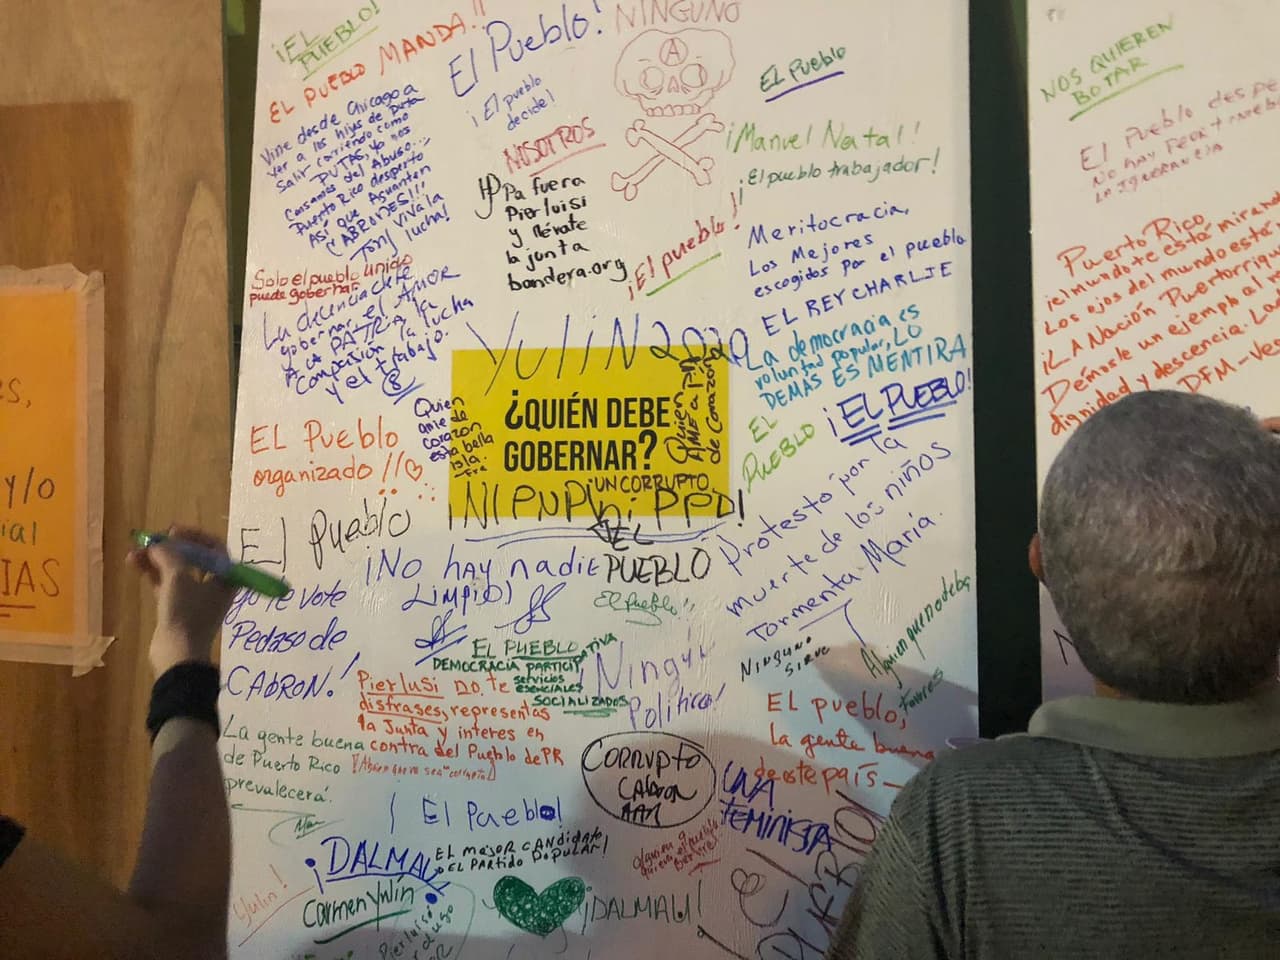 ¡EL
PUEBLO!
EL PUEBLO MANDA!!
El Pueblo!
NINGUNO
A
EL PUEBLO
Vine desde Chicago a
ver a los hijos de Puta
salir corriendo como
PUTAS, ya nos
Cansamos del Abuso...
Puerto Rico desperto
Así que Aguanten
CABRONES!!!
Tony viva la
lucha!
¡El pueblo
decide!
NOSOTROS
Pa fuera
Pierluisi
y llévate
la junta
bandera.org
¡El pueblo!
¡Manuel Natal!
¡El pueblo trabajador!
Meritocracia,
Los Mejores
escogidos por el pueblo
EL REY CHARLIE
Solo el pueblo unido
puede gobernar.
La decencia debe
gobernar, el Amor
A LA PATRIA, la
Compasión, la lucha
y el trabajo.
YuliN 2020
La democracia es
voluntad popular, LO
DEMÁS ES MENTIRA
¡EL PUEBLO!
EL
PUEBLO
¿QUIÉN DEBE
GOBERNAR?
Quien
ame de
corazon
esta bella
isla.
Quien
AME a PR
de Corazón
UN CORRUPTO
¡NI PNP ni PPD!
EL
PUEBLO
EL Pueblo
organizado!!
El Pueblo
¡No hay nadie
Limpio!
Yo te vote
Pedaso de
CABRON!
El pueblo!!
Protesto por la
muerte de los niños
Tormenta María.
NINGUNO
SIRVE
Alguien que no deba
Favores
EL PUEBLO
DEMOCRACIA PARTICIPATIVA
servicios
esenciales
SOCIALIZADOS
¡Ningún
Político!
Pierluisi no te
disfrases, representas
la Junta y interes en
contra del Pueblo de PR
La gente buena
de Puerto Rico
prevalecerá.
EL pueblo,
la gente buena
de este país—
CORRUPTO
CABRON
¡El Pueblo!
UNA
FEMINISTA
¡DALMAU
EL MEJOR CANDIDATO
DEL PARTIDO POPULAR!
Yulin!
Carmen Yulín
¡DALMAU!
El
PUEBLO
NOS QUIEREN
BOTAR
El Pueblo despe
No hay peor
LA IGNORANCIA
Puerto Rico
¡el mundo te está mirand
Los ojos del mundo está
¡LA Nación Puertorriqu
Démosle un ejemplo al
dignidad y descencia. La
DFM - Ve
y/o
ial
IAS